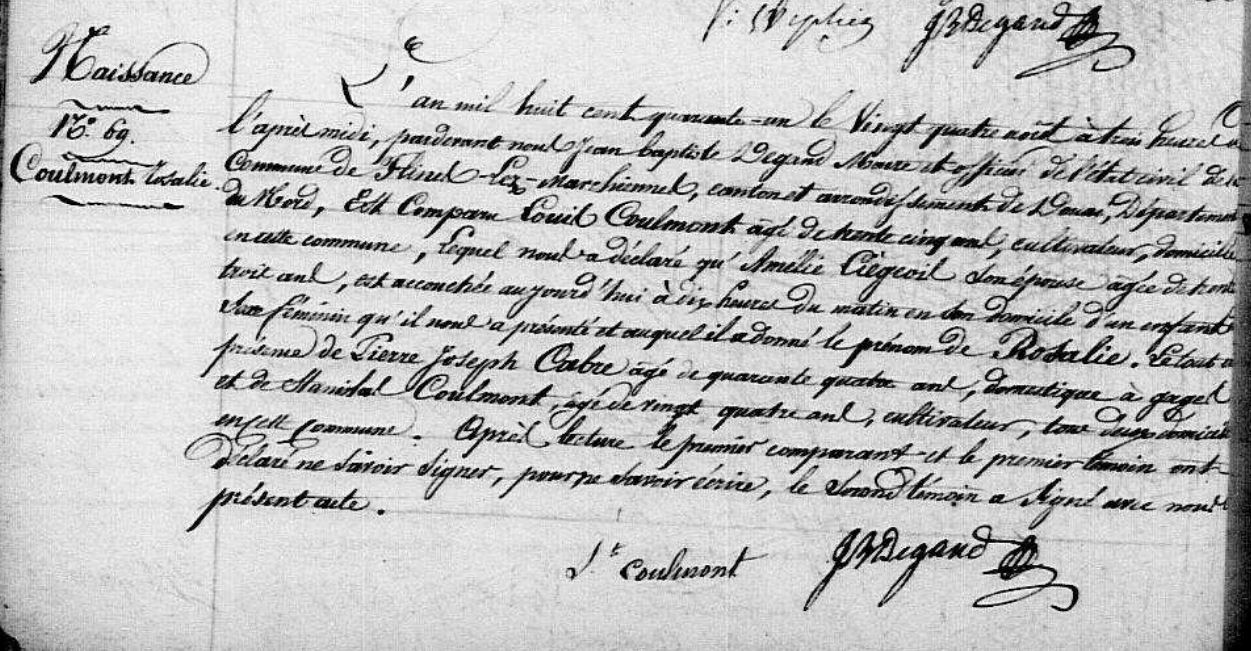 JBDegand
Naissance
N.° 69.
Coulmont Rosalie
L'an mil huit cent quarante-un le Vingt quatre août à trois heures
l'après midi, pardevant nous Jean baptiste Degand Maire et officier de l'état civil de la
Commune de Flines-Lez-Marchiennes, canton et arrondissement de Douai, Département
du Nord, Est Comparu Louis Coulmont âgé de trente cinq ans, cultivateur, domicilié
en cette commune, lequel nous a déclaré qu'Amélie Liégeois son épouse âgée de trente
trois ans, est accouchée aujourd'hui à dix heures du matin en son domicile d'un enfant
Sexe féminin qu'il nous a présenté et auquel il a donné le prénom de Rosalie. Le tout a
présence de Pierre Joseph Cabre âgé de quarante quatre ans, domestique à gages
et de Stanislas Coulmont, âgé de vingt quatre ans, cultivateur, tous deux domiciliés
en cette Commune. Après lecture le premier comparant et le premier témoin ont
déclaré ne savoir signer, pour ne savoir écrire, le second témoin a signé avec nous
présent acte.
S.te coulmont JBDegand